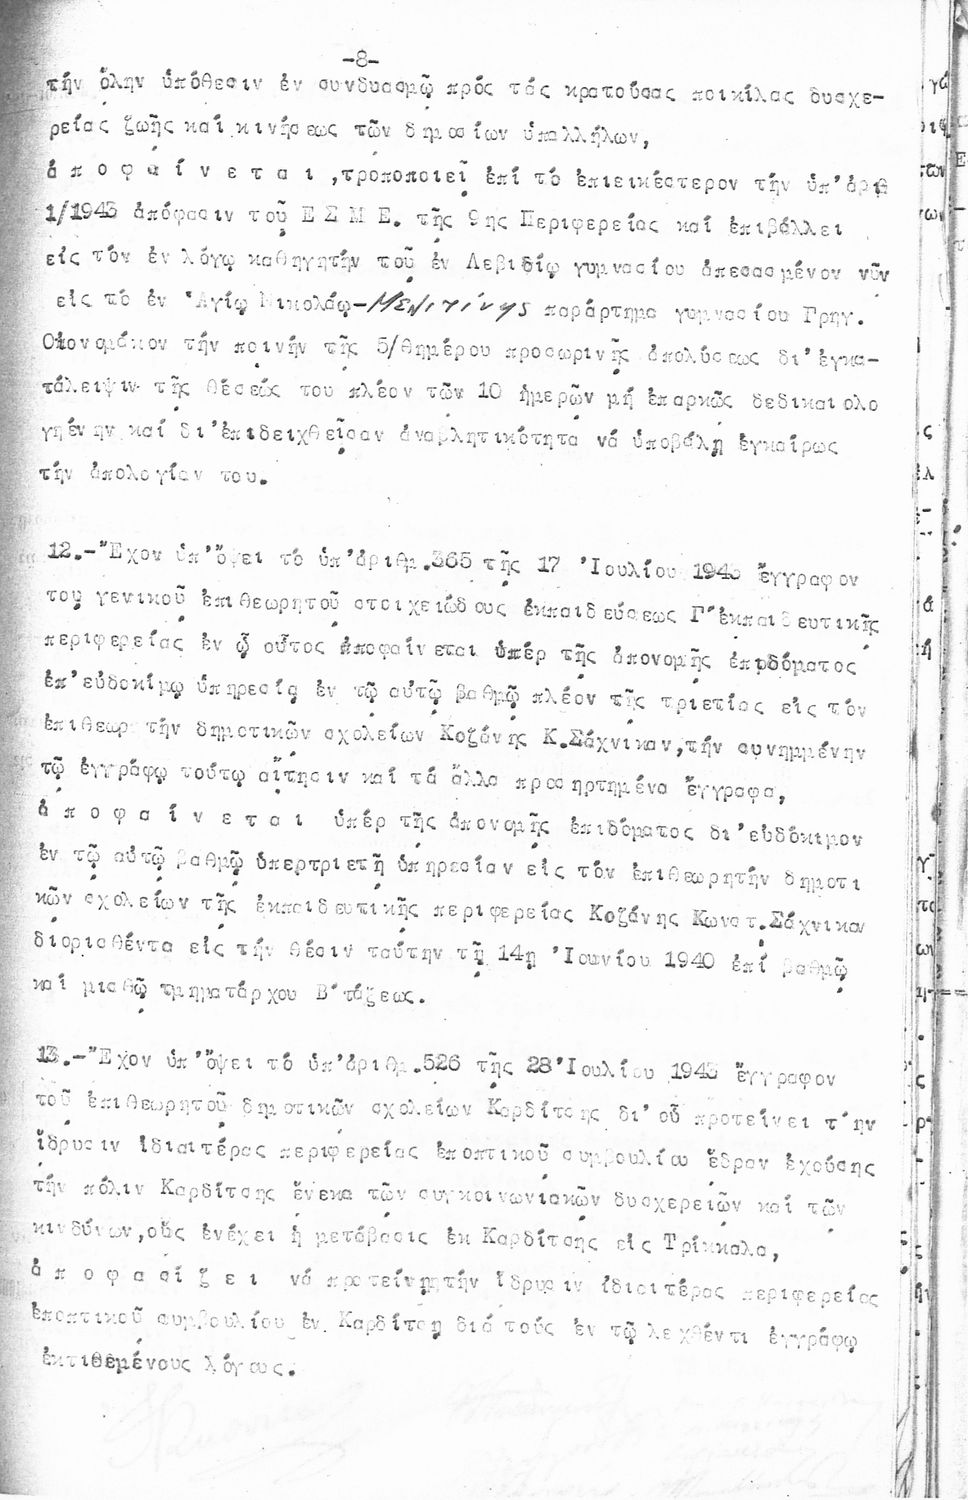 -8-
τήν ὅλην ὑπόθεσιν ἐν συνδυασμῷ πρός τάς κρατούσας ποικίλας δυσχε-
ρείας ζωῆς καί κινήσεως τῶν δημοσίων ὑπαλλήλων,
ἀ π ο φ α ί ν ε τ α ι ,τροποποιεῖ ἐπί τό ἐπιεικέστερον τήν ὑπ'ἀριθ
1/1943 ἀπόφασιν τοῦ Ε Σ Μ Ε. τῆς 9ης Περιφερείας καί ἐπιβάλλει
εἰς τόν ἐν λόγῳ καθηγητήν τοῦ ἐν Λεβιδίῳ γυμνασίου ἀπεσασμένον νῦν
εἰς τό ἐν 'Αγίῳ Νικολάῳ-Μενιτίνης παράρτημα γυμνασίου Γρηγ.
Οἰκονομάκον τήν ποινήν τῆς 5/θημέρου προσωρινῆς ἀπολύσεως δι'ἐγκα-
τάλειψιν τῆς θέσεώς του πλέον τῶν 10 ἡμερῶν μή ἐπαρκῶς δεδικαιολο
γηένην καί δι'ἐπιδειχθεῖσαν ἀναβλητικότητα νά ὑποβάλῃ ἐγκαίρως
τήν ἀπολογίαν του.
12.-"Εχον ὑπ'ὄψει τό ὑπ'ἀριθμ.365 τῆς 17 'Ιουλίου 1943 ἔγγραφον
του γενικοῦ ἐπιθεωρητοῦ στοιχειώδους ἐκπαιδεύσεως Γ'ἐκπαιδευτικῆς
περιφερείας ἐν ᾧ οὗτος ἀποφαίνεται ὑπέρ τῆς ἀπονομῆς ἐπιδόματος
ἐπ'εὐδοκίμῳ ὑπηρεσίᾳ ἐν τῷ αὐτῷ βαθμῷ πλέον τῆς τριετίας εἰς τόν
ἐπιθεωρ τήν δημοτικῶν σχολείων Κοζάνης Κ.Σάχνικαν,τήν συνημμένην
τῷ ἐγγράφῳ τούτῳ αἴτησιν καί τά ἄλλα προσηρτημένα ἔγγραφα,
ἀ π ο φ α ί ν ε τ α ι ὑπέρ τῆς ἀπονομῆς ἐπιδόματος δι'εὐδόκιμον
ἐν τῷ αὐτῷ βαθμῷ ὑπερτριετῆ ὑπηρεσίαν εἰς τόν ἐπιθεωρητήν δημοτι
κῶν σχολείων τῆς ἐκπαιδευτικῆς περιφερείας Κοζάνης Κωνστ.Σάχνικαν
διορισθέντα εἰς τήν θέσιν ταύτην τῇ 14η 'Ιουνίου 1940 ἐπί βαθμῷ
καί μισθῷ τμηματάρχου Β'τάξεως.
13.-"Εχον ὑπ'ὄψει τό ὑπ'ἀριθμ.526 τῆς 28'Ιουλίου 1943 ἔγγραφον
τοῦ ἐπιθεωρητοῦ δημοτικῶν σχολείων Καρδίτσης δι' οὗ προτείνει τ'ην
ἵδρυσιν ἰδιαιτέρας περιφερείας ἐποπτικοῦ συμβουλίου ἕδραν ἐχούσης
τήν πόλιν Καρδίτσης ἕνεκα τῶν συγκοινωνιακῶν δυσχερειῶν καί τῶν
κινδύνων,οὕς ἐνέχει ἡ μετάβασις ἐκ Καρδίτσης εἰς Τρίκκαλα,
ἀ π ο φ α σ ί ζ ε ι νά προτείνῃτήν ἵδρυσιν ἰδιαιτέρας περιφερείας
ἐποπτικοῦ συμβουλίου ἐν Καρδίτσῃ διά τούς ἐν τῷ λεχθέντι ἐγγράφῳ
ἐκτιθεμένους λόγους.